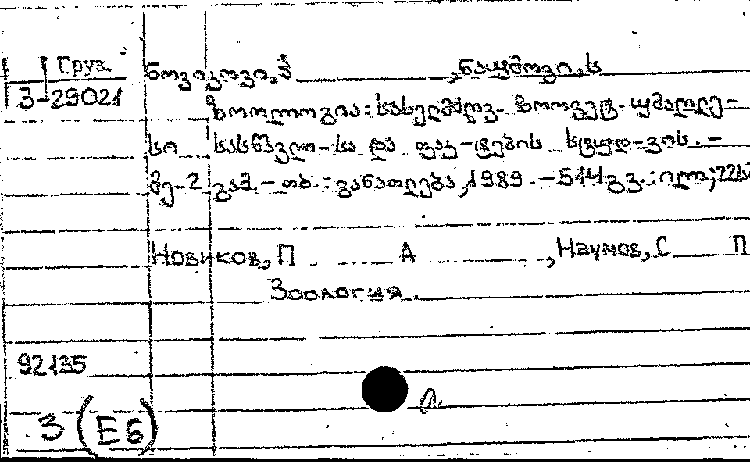 Груз.
3-29021
ნოვიკოვი, პ. , ნაუმოვი, ს
ზოოლოგია: სასხელმძღვ. ზოოვეტ. უმაღლე-
სი სასწავლო-სა და ფაკ-ტების სტუდ-ვის. –
მე-2 გამ. – თბ.: განათლება, 1989. – 544 გვ.: ილ.; 22სმ
Новиков, П А , Наумов, С П
Зоология.
92135
3 (Е6)